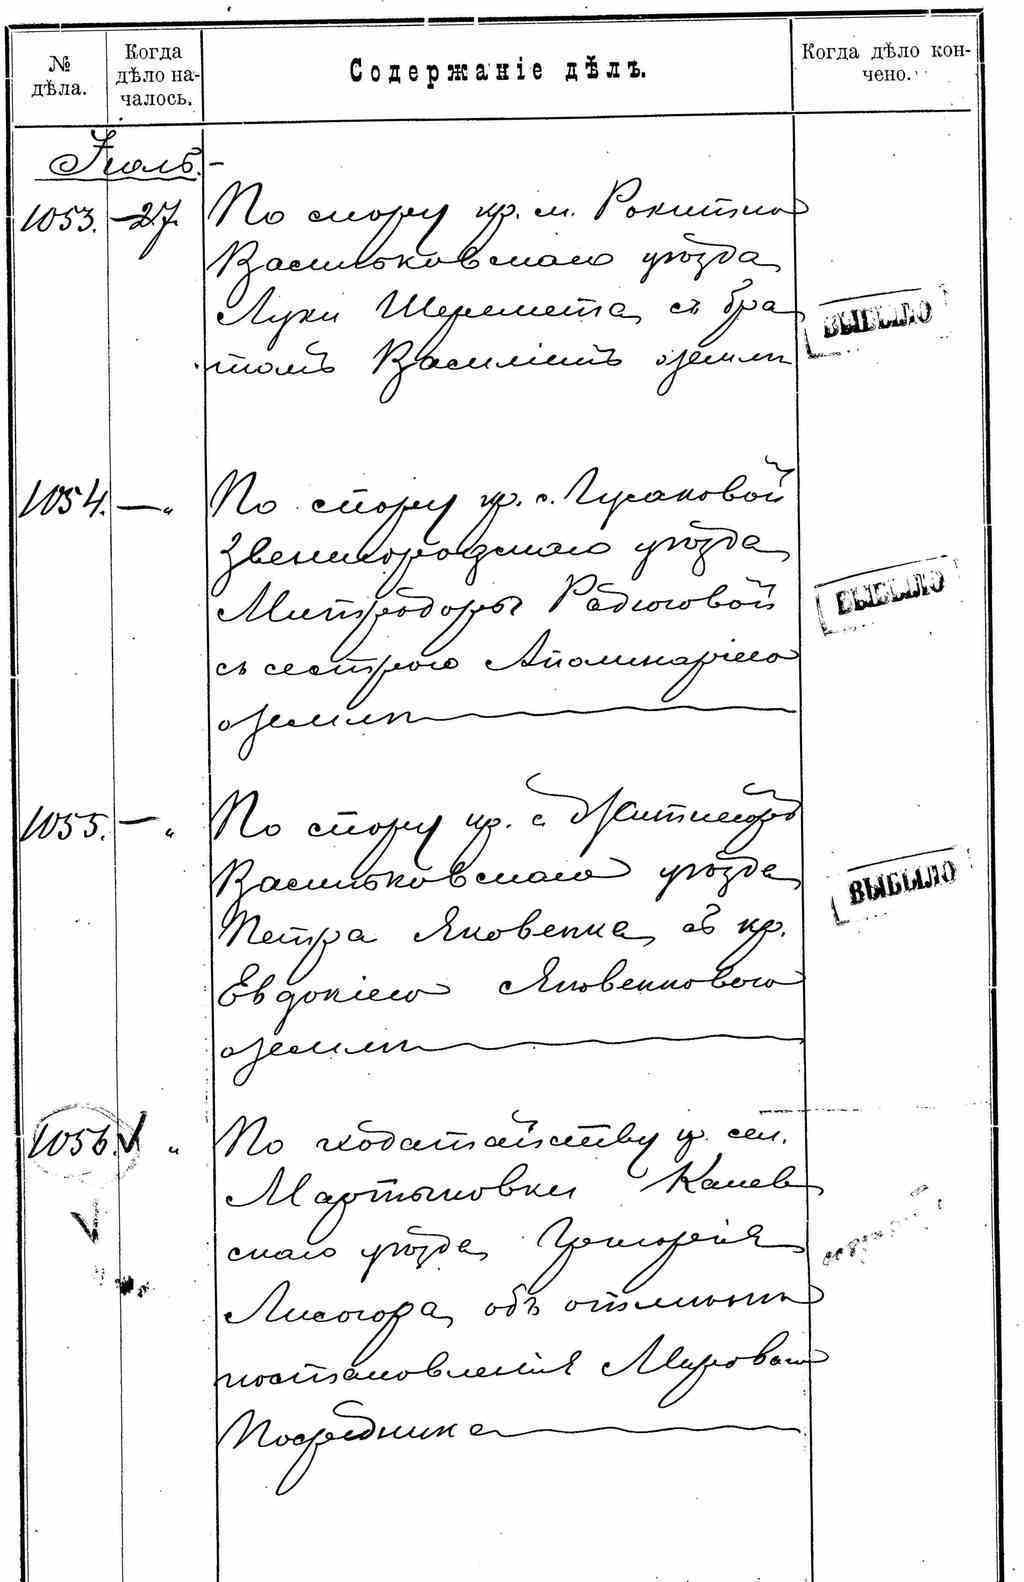 № дѣла.
Когда дѣло на-
чалось.
Содержаніе дѣлъ.
Когда дѣло кон-
чено.
Іюль.-
1053. - 27. По спору кр. м. Рокитно
Васильковскаго уѣзда
Луки Шеремета съ бра
томъ Василіемъ о землѣ
ВЫБЫЛО
1054. — „ По спору кр. с. Гусаковой
Звенигородскаго уѣзда
Митродоры Радюковой
съ сестрою Аполинаріею
о землѣ
ВЫБЫЛО
1055. — „ По спору кр. с. Житнегоръ
Васильковскаго уѣзда
Петра Яковенка съ кр.
Евдокіею Яковенковою
о землѣ
ВЫБЫЛО
1056. „ По ходатайству кр. сел.
Мартыновки Канев
скаго уѣзда Григорія
Лисогора объ отмѣнѣ
постановленія Мироваго
Посредника